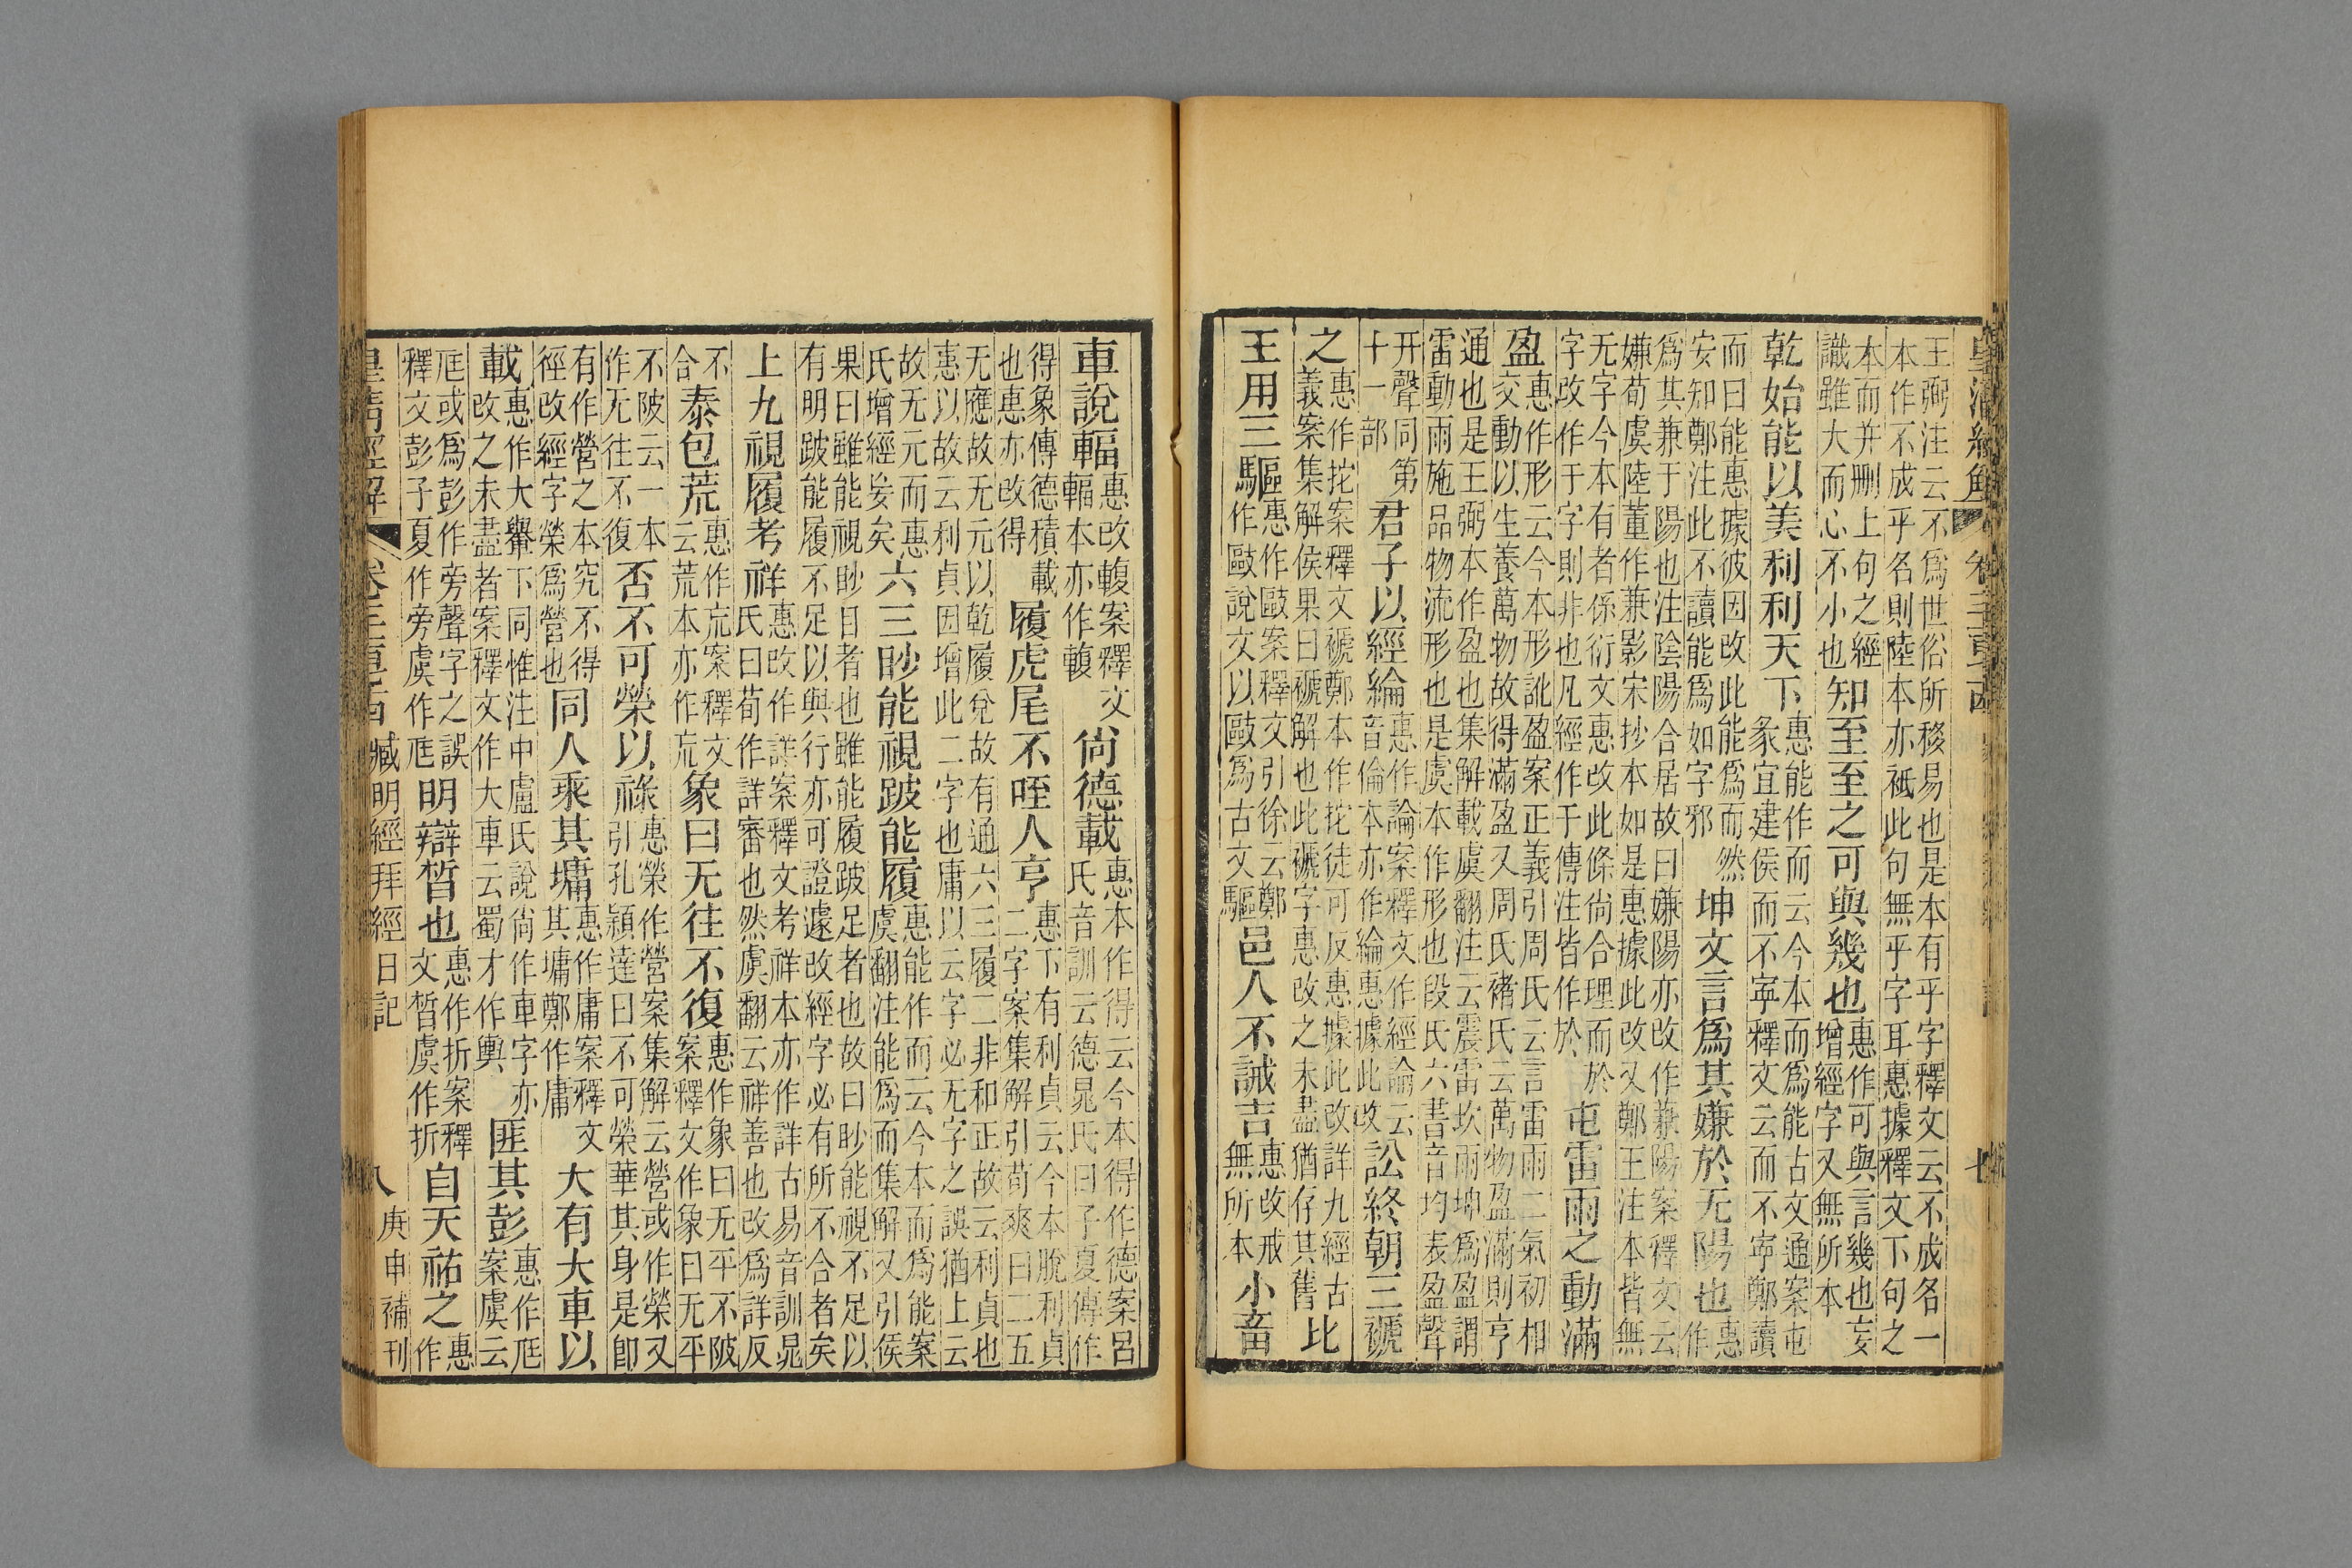 皇清經解
七
王弼注云不爲世俗所移易也是本有乎字釋文云不成名一
本作不成乎名則陸本亦祗此句無乎字耳惠據釋文下句之
本而并刪上句之經識雖大而心不小也知至至之可與幾也惠作可與言幾也妄增經字又無所本
乾始能以美利利天下惠能作而云今本而爲能古文通案屯彖宜建侯而不寧釋文云而不寧鄭讀
而曰能惠據彼因改此能爲而然安知鄭注此不讀能爲如字邪坤文言爲其嫌於无陽也惠作
爲其兼于陽也注陰陽合居故曰嫌陽亦改作兼陽案釋文云
嫌荀虞陸董作兼影宋抄本如是惠據此改又鄭王注本皆無
无字今本有者係衍文惠改此條尙合理而於字改作于字則非也凡經作于傳注皆作於屯雷雨之動滿
盈惠作形云今本形訛盈案正義引周氏云言雷雨二氣初相交動以生養萬物故得滿盈又周氏褚氏云萬物盈滿則亨
通也是王弼本作盈也集解載虞翻注云震雷坎雨坤爲盈謂
雷動雨施品物流形也是虞本作形也段氏六書音均表盈聲
开聲同第十一部君子以經綸惠作論案釋文作經論云音倫本亦作綸惠據此改訟終朝三褫
之惠作拕案釋文褫鄭本作拕徒可反惠據此改詳九經古義案集解侯果曰褫解也此褫字惠改之未盡猶存其舊比
王用三驅惠作敺案釋文引徐云鄭作敺說文以敺爲古文驅邑人不誡吉惠改戒無所本小畜
車說輻惠改輹案釋文輻本亦作輹尙德載惠本作得云今本得作德案呂氏音訓云德晁氏曰子夏傳作
得象傳德積載也惠亦改得履虎尾不咥人亨惠下有利貞云今本脫利貞二字案集解引荀爽曰二五
无應故无元以乾履兌故有通六三履二非和正故云利貞也
惠以故云利貞因增此二字也庸以云字必无字之誤猶上云
故无元而惠氏增經妄矣六三眇能視跛能履惠能作而云今本而爲能案虞翻注能爲而集解又引侯
果曰雖能視眇目者也雖能履跛足者也故曰眇能視不足以
有明跛能履不足以與行亦可證遽改經字必有所不合者矣
上九視履考祥惠改作詳案釋文考祥本亦作詳古易音訓晁氏曰荀作詳審也然虞翻云祥善也改爲詳反
不合泰包荒惠作巟案釋文云荒本亦作巟象曰无往不復惠作象曰无平不陂案釋文作象曰无平
不陂云一本作无往不復否不可榮以祿惠榮作營案集解云營或作榮又引孔穎達曰不可榮華其身是卽
有作營之本究不得徑改經字榮爲營也同人乘其墉惠作庸案釋文其墉鄭作庸大有大車以
載惠作大轝下同惟注中盧氏說尙作車字亦改之未盡者案釋文作大車云蜀才作輿匪其彭惠作尫案虞云
尫或爲彭作旁聲字之誤釋文彭子夏作旁虞作尫明辯晢也惠作折案釋文晢虞作折自天祐之惠作
皇清經解
臧明經拜經日記
八
庚申補刊